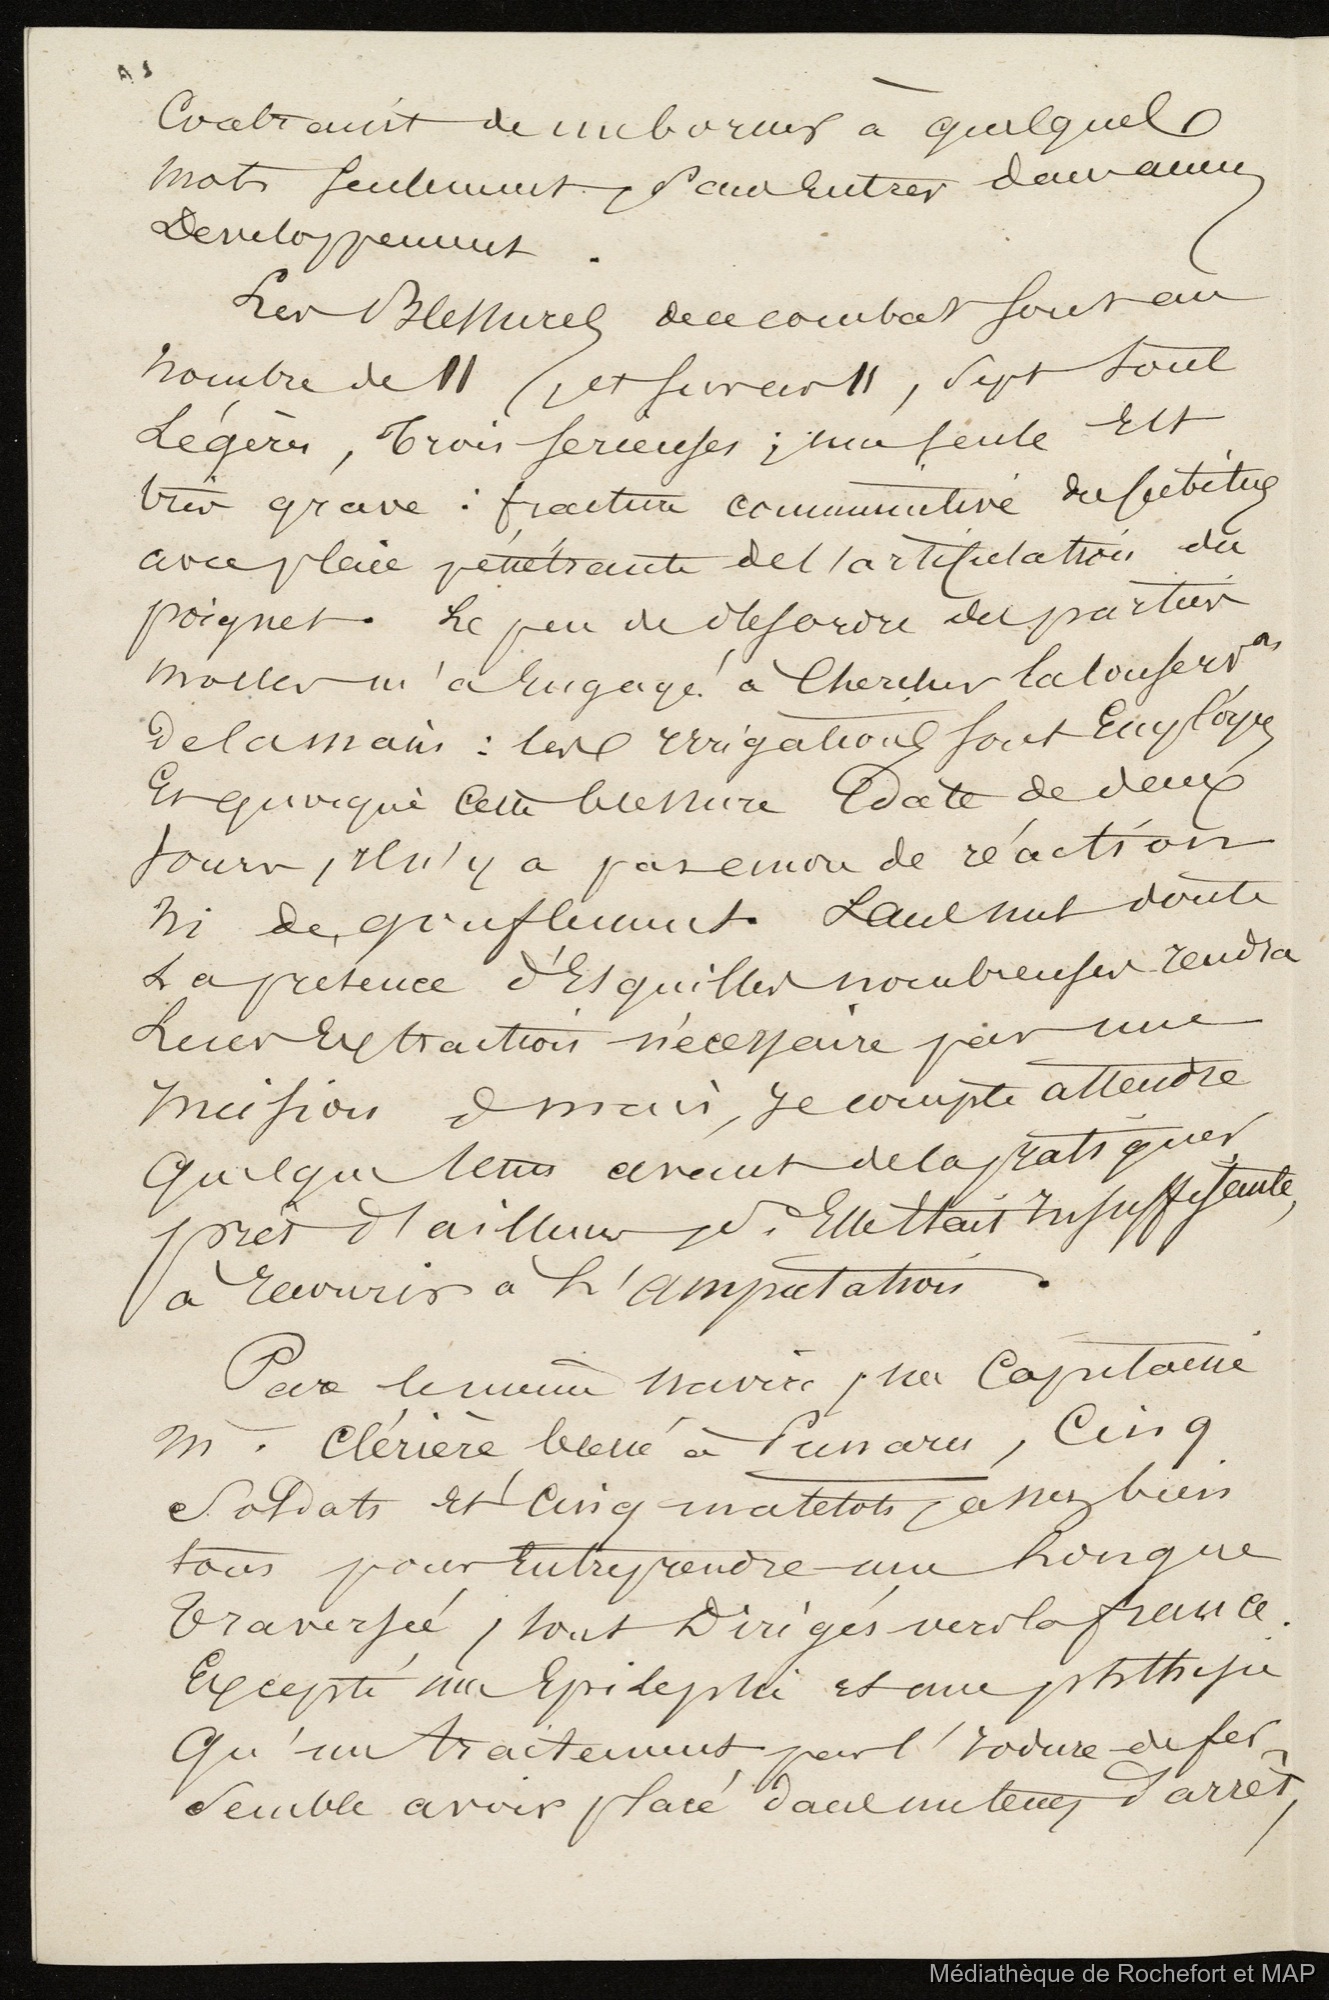 contraint de me borner à quelques
mots seulement, sans entrer dans aucun
Developpement.
Les Blessures de ce combat sont au
nombre de 11, et sur ces 11, sept sont
Légères, trois serieuses ; une seule est
très grave : fracture comminutive du cubitus
avec plaie pénétrante de l'articulation du
poignet. Le peu de desordre des parties
molles m'a engagé à chercher la conserv on
de la main : les irrigations sont employés
Et quoique cette blessure date de deux
jours, il n'y a pas encore de réaction
ni de gonflement. Sans nul doute
La présence d'Esquilles nombreuses rendra
Leur Extraction nécessaire par une
incision mais, je compte attendre
quelque tems avant de la pratiquer,
prêt d'ailleurs, si Elle était insuffisante,
à recourir à L'amputation.
Par le meme navire, un Capitaine
M. Clérière blessé à , Cinq
Soldats et Cinq matelots, assez bien
tous pour Entreprendre une Longue
traversée, sont Dirigés vers la france.
Excepté une Epilepsie et une phthisie
qu'un traitement par l'iodure de fer
semble avoir placé dans un tems d'arrêt,
Médiathèque de Rochefort et MAP